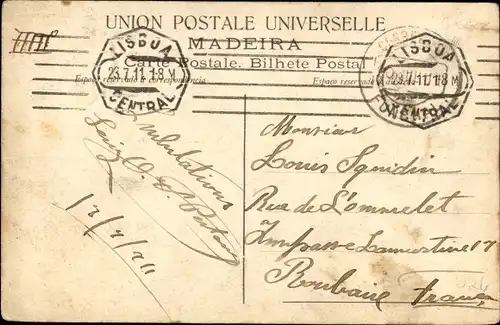 UNION POSTALE UNIVERSELLE
MADEIRA
Carte Postale. Bilhete Postal
Espaço reservado á correspondencia
Espaço reservado
LISBOA
23.7.11. 1-8 M
CENTRAL
LISBOA
23.7.11. 1-8 M
CENTRAL
Monsieur
Louis
Rue de L'ommelet
Impasse Lamartine 17
Roubaix France